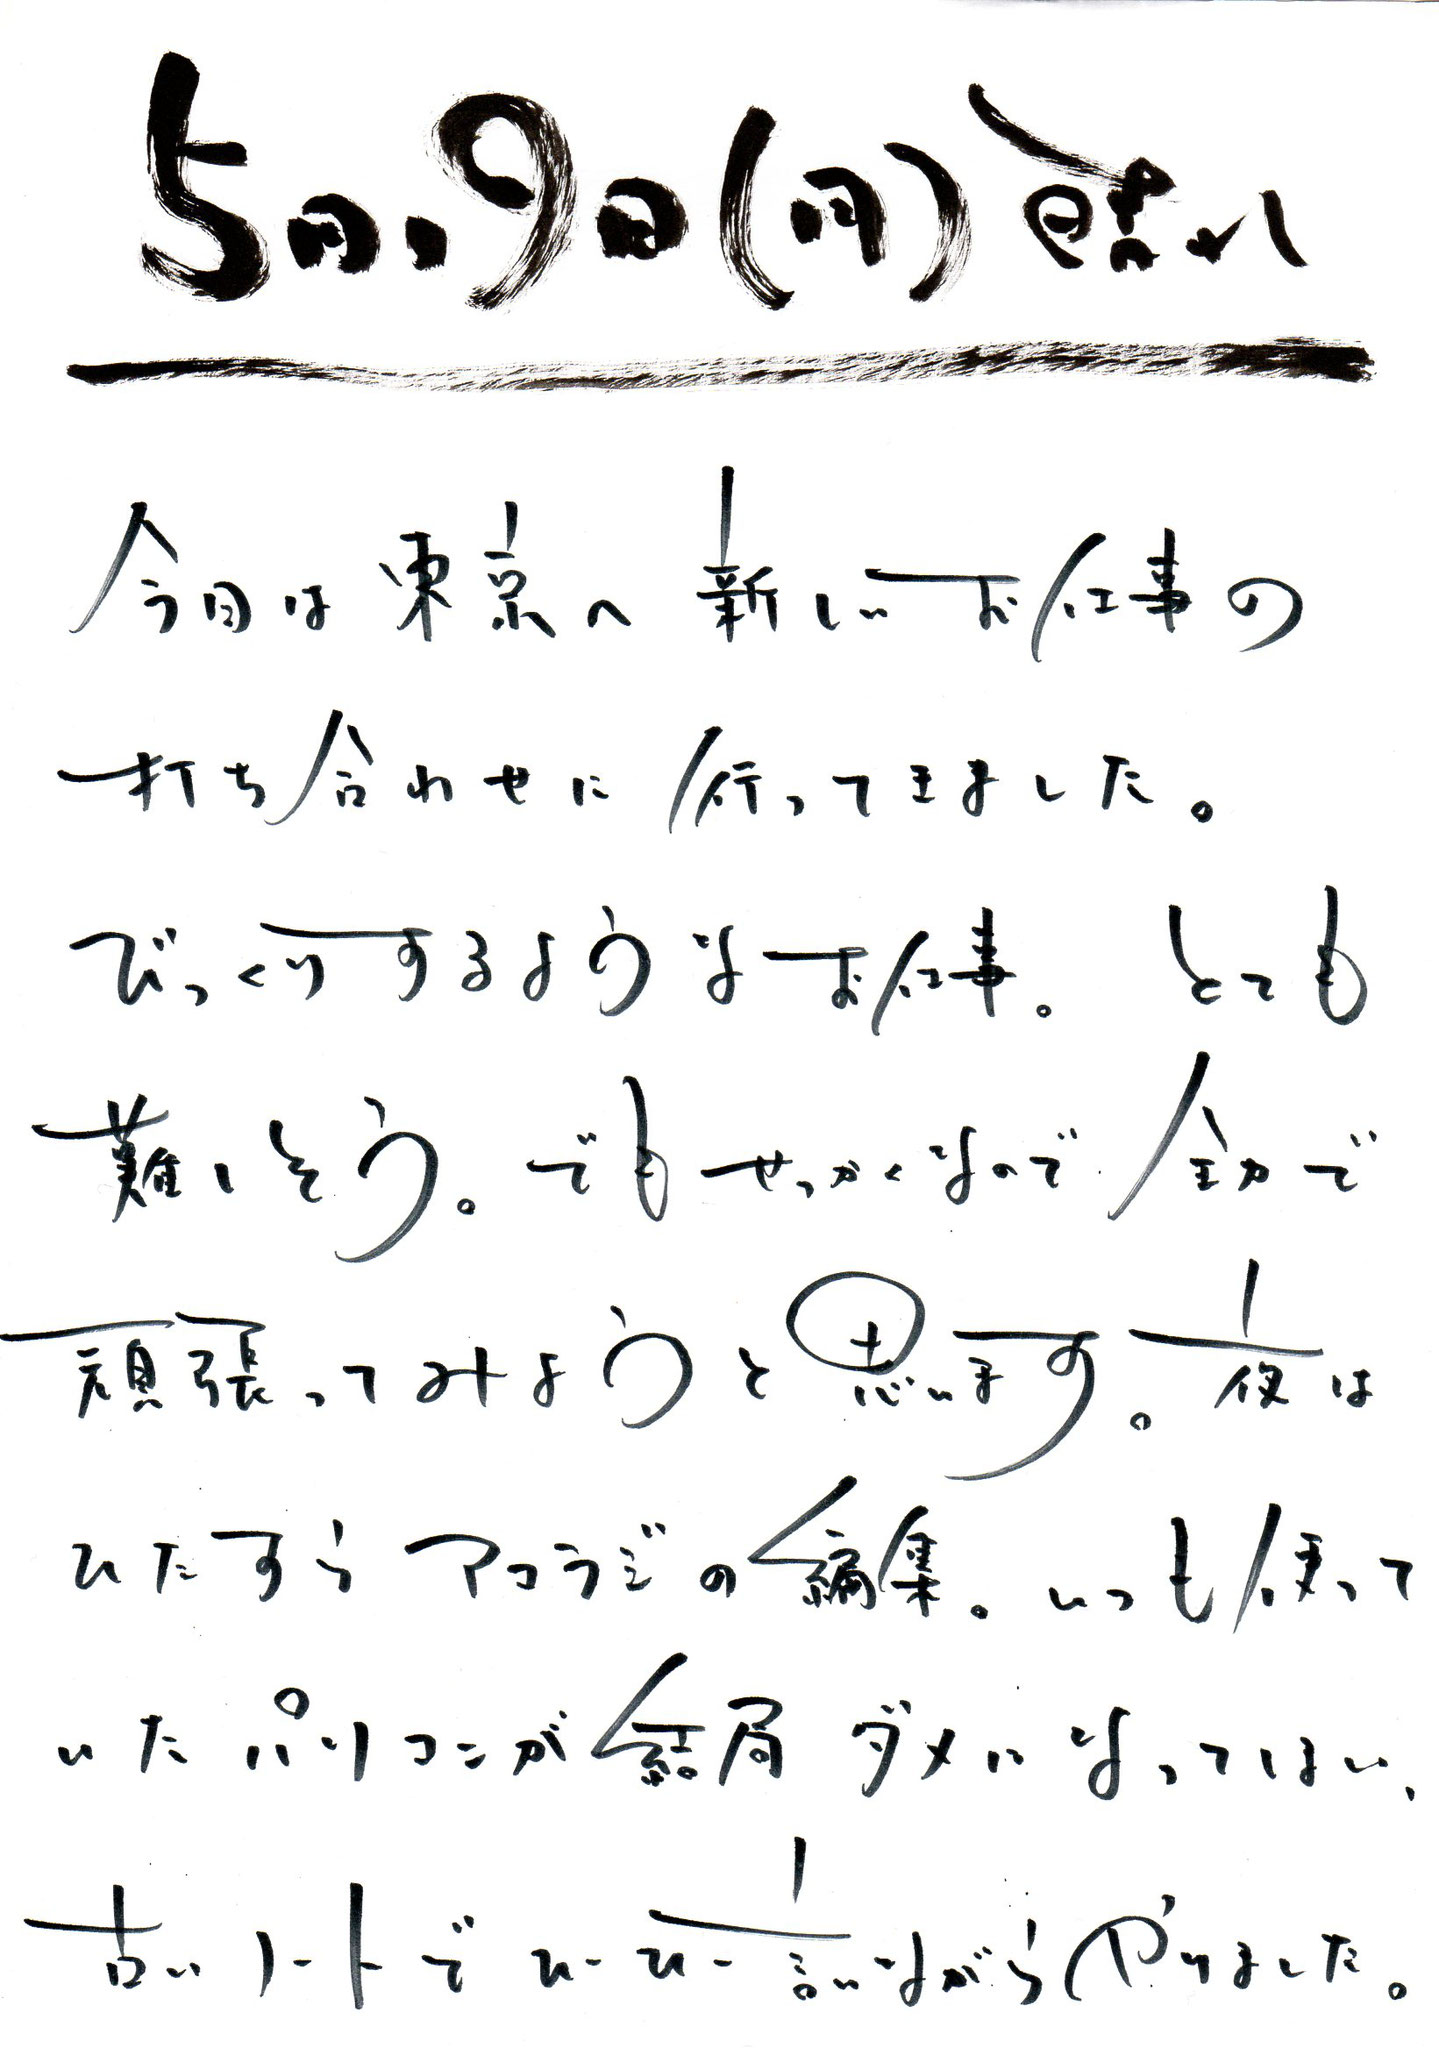 5月9日(月)晴れ
今日は東京へ新しいお仕事の
打ち合わせに行ってきました。
びっくりするようなお仕事。とても
難しそう。でもせっかくなので全力で
頑張ってみようと思います。夜は
ひたすらアコラジの編集。いつも使って
いたパソコンが結局ダメになってしまい、
古いノートでひーひー言いながらやりました。